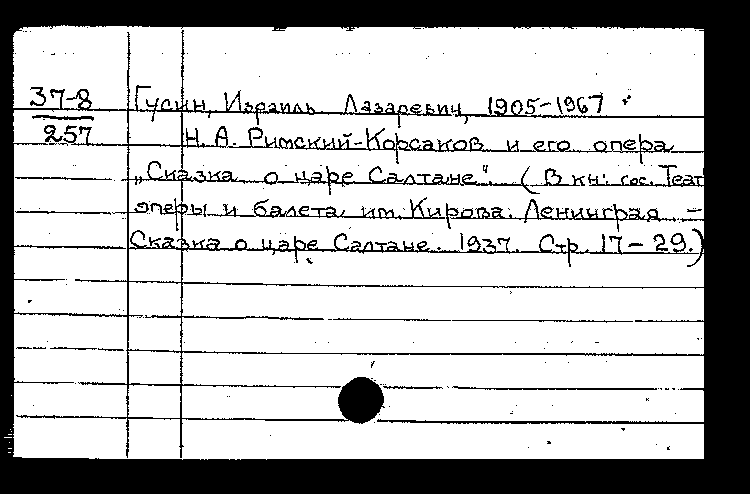 37-8 Гусин, Израиль Лазаревич, 1905-1967
257 Н. А. Римский-Корсаков и его опера
„Сказка о царе Салтане". (В кн: гос. Теат
оперы и балета им. Кирова. Ленинград -
Сказка о царе Салтане. 1937. Стр. 17-29.)